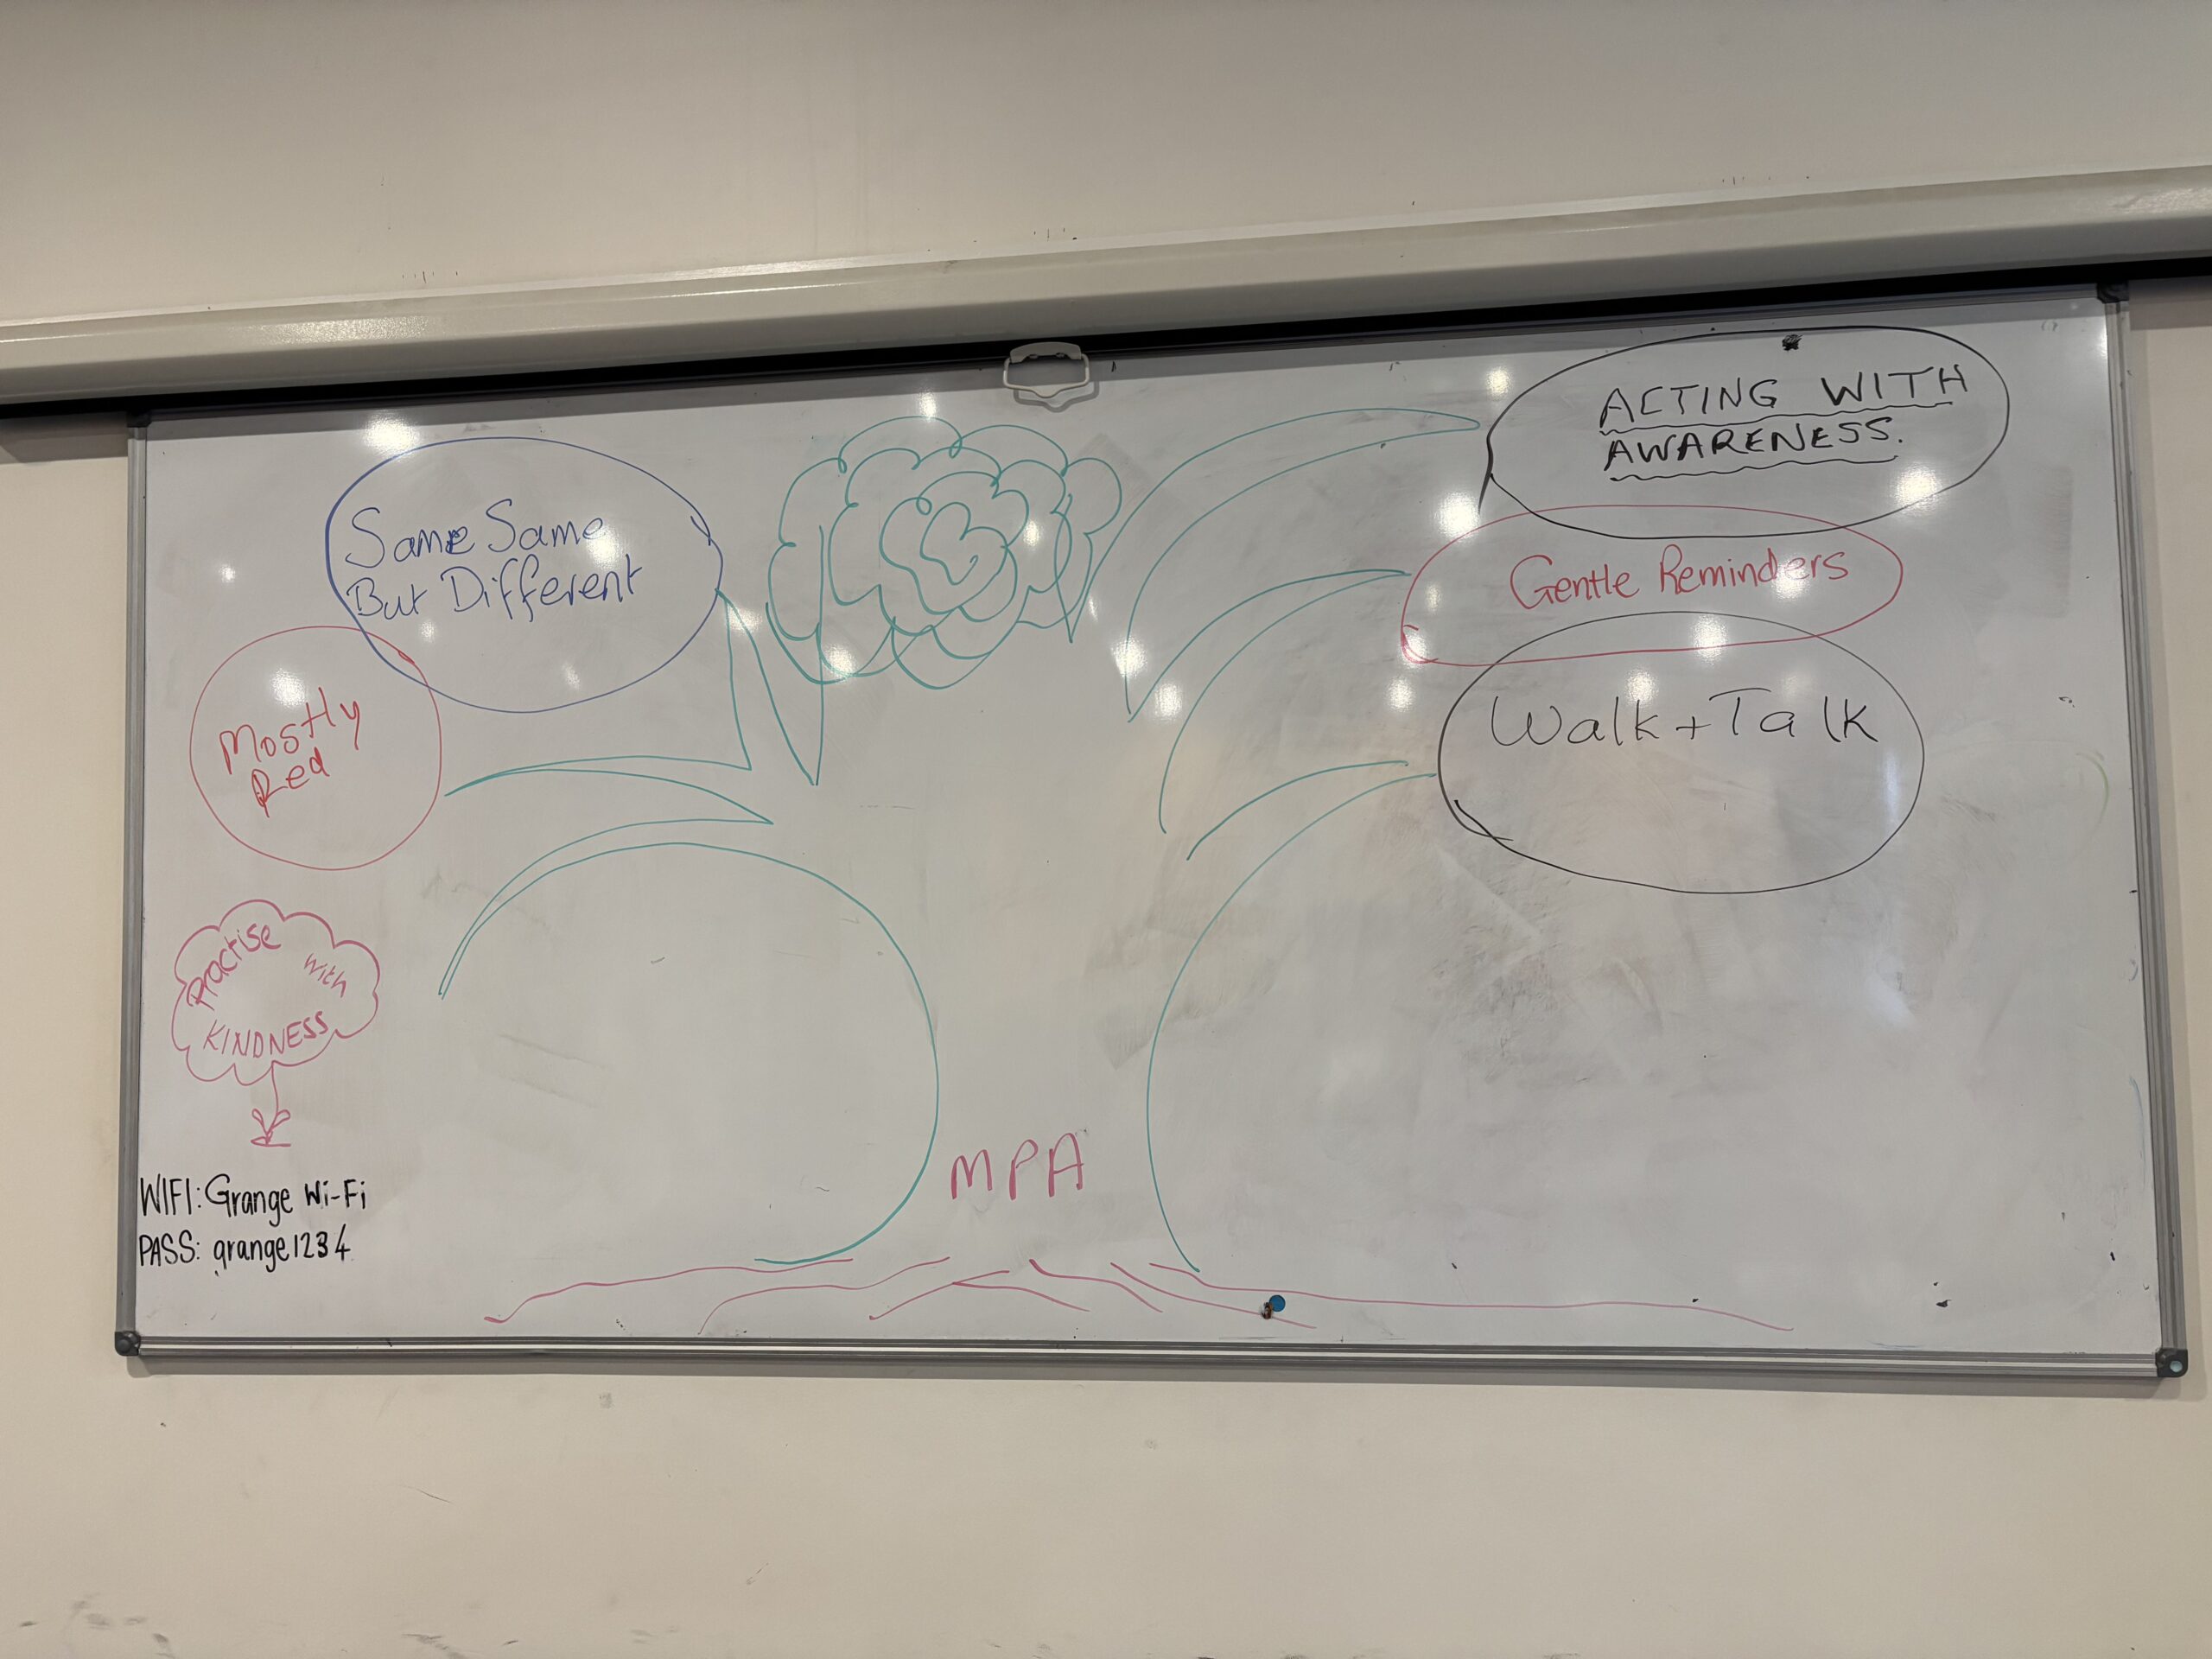 Same Same
But Different
Mostly
Red
Practise
with
KINDNESS
WIFI: Grange Wi-Fi
PASS: grange1234
MPA
ACTING WITH
AWARENESS.
Gentle Reminders
Walk + Talk